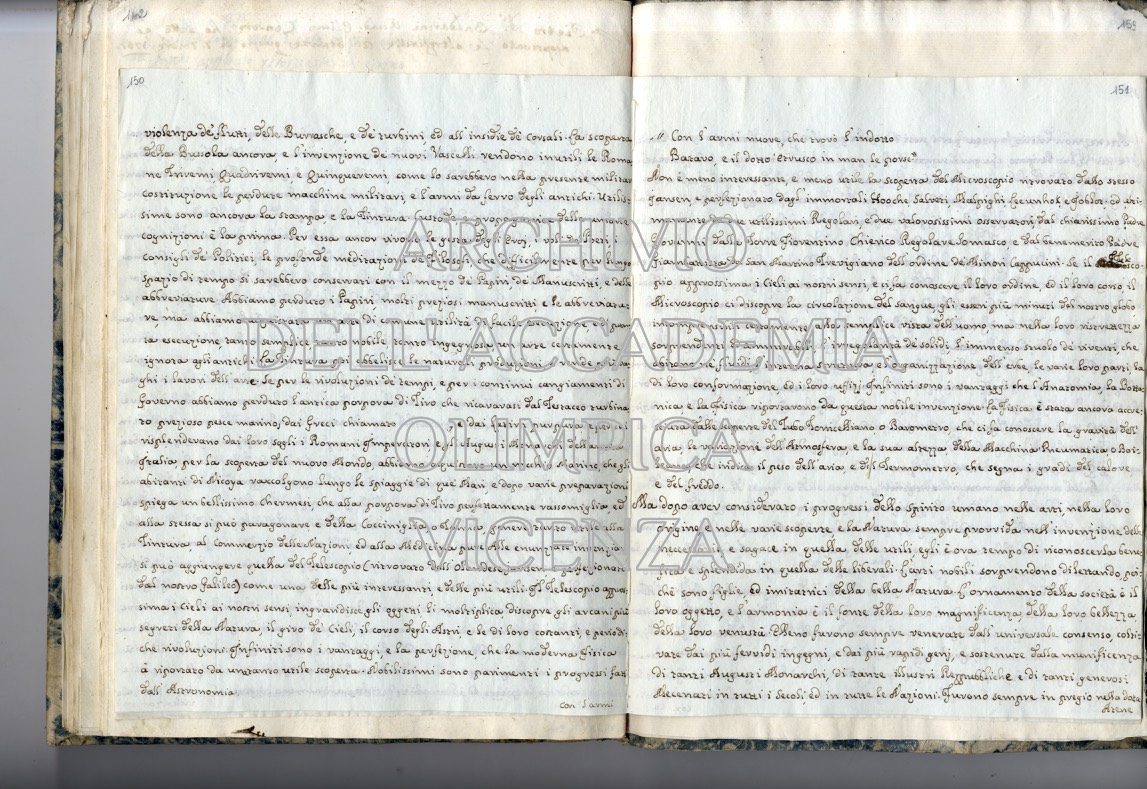 1142
150
violenza de' flutti, delle Burrasche, e de' turbini ed all'insidie de' Corsali. La scoperta
della Bussola ancora, e l'invenzione de' nuovi Vascelli rendono inutili le Roma
ne Triremi, Quadriremi, e Quinqueremi, come lo sarebbero nella presente militar
costituzione le perdute macchine militari, e l'armi da ferro degli antichi. Utilis-
sime sono ancora la stampa e la Tintura. Custode e propagatrice delle umane
cognizioni è la prima. Per essa ancor vivono le gesta degli Eroi, i voli de' Poeti, i
Consigli de' Politici, le profonde meditazioni de' Filosofi, che difficilmente per lungo
spazio di tempo si sarebbero conservati con il mezzo de' Papiri, de' Manuscritti, e delle
abbreviature. Abbiamo perduto i Papiri molti preziosi manuscritti e le abbreviatu-
re, ma abbiamo acquistata un'arte di comune utilità di facile ed pron
ta esecuzione, tanto semplice tanto nobile, tanto ingegnosa un'arte certamente
ignota agli antichi. La Tintura poi abbellisce le naturali produzioni, e rende più va
ghi i lavori dell'arte. Se per le rivoluzioni de' tempi, e per i continui cangiamenti di
Governo abbiamo perduto l'antica porpora di Tiro che ricavavasi dal Testaceo turbina
to prezioso pesce marino, dai Greci chiamato e dai Latini purpura e per cui
risplendevano dai loro sogli i Romani Imperatori, e gli Augusti Monarchi della
Italia, per la scoperta del nuovo Mondo, abbiamo un ricchio Marino, che gli
abitanti di Nicoya raccolgono lungo le spiaggie di que' Mari e dopo varie preparazioni
spiega un bellissimo Chermesi, che alla porpora di Tiro perfettamente rassomiglia, ed
alla stessa si può paragonare e della Cocciniglia generi tanto utile alla
Tintura, al Commerzio delle Nazioni, ed alla Medicina pure. Alle enunziate invenzioni
si può aggiungere quella del Telescopio (ritrovato dall'Olandese e perfezionato
dal nostro Galileo) come una delle più interessanti, e delle più utili. Il Telescopio appros-
sima i Cieli ai nostri sensi, ingrandisce gli oggetti li moltiplica, discopre gli arcani più
segreti della Natura, il giro de' Cieli, il corso degli Astri, e le di loro costanti, e periodi-
che rivoluzioni. Infiniti sono i vantaggi, e la perfezione, che la moderna fisica
à riportato da un tanto utile scoperta. Nobilissimi sono parimenti i progressi fat
dall'Astronomia
con l'armi
151
" Con l'armi nuove, che trovò l'indotto
Batavo, e il dotto Etrusco in man le porse"
Non è meno interessante, e meno utile la scoperta del Microscopio ritrovato dallo stesso
Jansen, e perfezionato dagl'immortali Hooche Salveti, Malpighi, Leeunhok, e Joblot, ed ulti-
mamente da due utilissimi Regolari, e due valorosissimi osservatori, dal chiarissimo Padre
Giovanni dalla Torre Fiorentino Chierico Regolare Somasco, e dal benemerito Padre
Giambattista da San Martino Trevigiano dell'ordine de' Minori Cappucini. Se il Telesco-
pio approssima i Cieli ai nostri sensi, e ci fa conoscere il loro ordine, ed il loro corso il
Microscopio ci discopre la circolazione del sangue, gli esseri più minuti del nostro globo
certamente alla semplice vista dell'uomo, ma nella loro ristrettezza
sorprendenti, ed ammirabili, l'irregolarità de' solidi, l'immenso stuolo de' viventi, che
abitano ne' fluidi, l'interna struttura e l'organizzazione dell'erbe, le varie loro parti, la
di loro conformazione, ed i loro uffizi. Infiniti sono i vantaggi che l'Anatomia, la Botta
nica, e la Fisica riportarono da questa nobile invenzione. La Fisica è stata ancora accre-
sciuta dalle scoperte del Tubo Torricelliano o Barometro, che ci fa conoscere la gravità dell'
aria, le variazioni dell'Atmosfera, e la sua altezza, della Macchina Pneumatica, o Boi-
leana, che indica il peso dell'aria e del Termometro, che segna i gradi del calore
e del freddo.
Ma dopo aver considerato i progressi dello spirito umano nelle arti, nella loro
origine, e nelle varie scoperte, e la Natura sempre provvida nell'invenzione delle
neccessarie, e sagace in quella delle utili, egli è ora tempo di riconoscerla bene
fica, e splendida in quella delle liberali. L'arti nobili sorprendono dilettando, poi-
chè sono figlie, ed imitatrici della bella Natura. L'ornamento della società è il
loro oggetto, e l'armonia è il fonte della loro magnificenza, della loro bellezza
della loro venustà. Meno furono sempre venerate dall'universale consenso, colti
vate dai più fervidi ingegni, e dai più rapidi genj, e sostenute dalla munificenza
di tanti Augusti Monarchi, di tante illustri Reppubliche e di tanti generosi
Mecenati in tutti i Secoli, ed in tutte le Nazioni. Furono sempre in pregio nella dotta
Atene
ARCHIVIO
DELL'ACCADEMIA
OLIMPICA
VICENZA